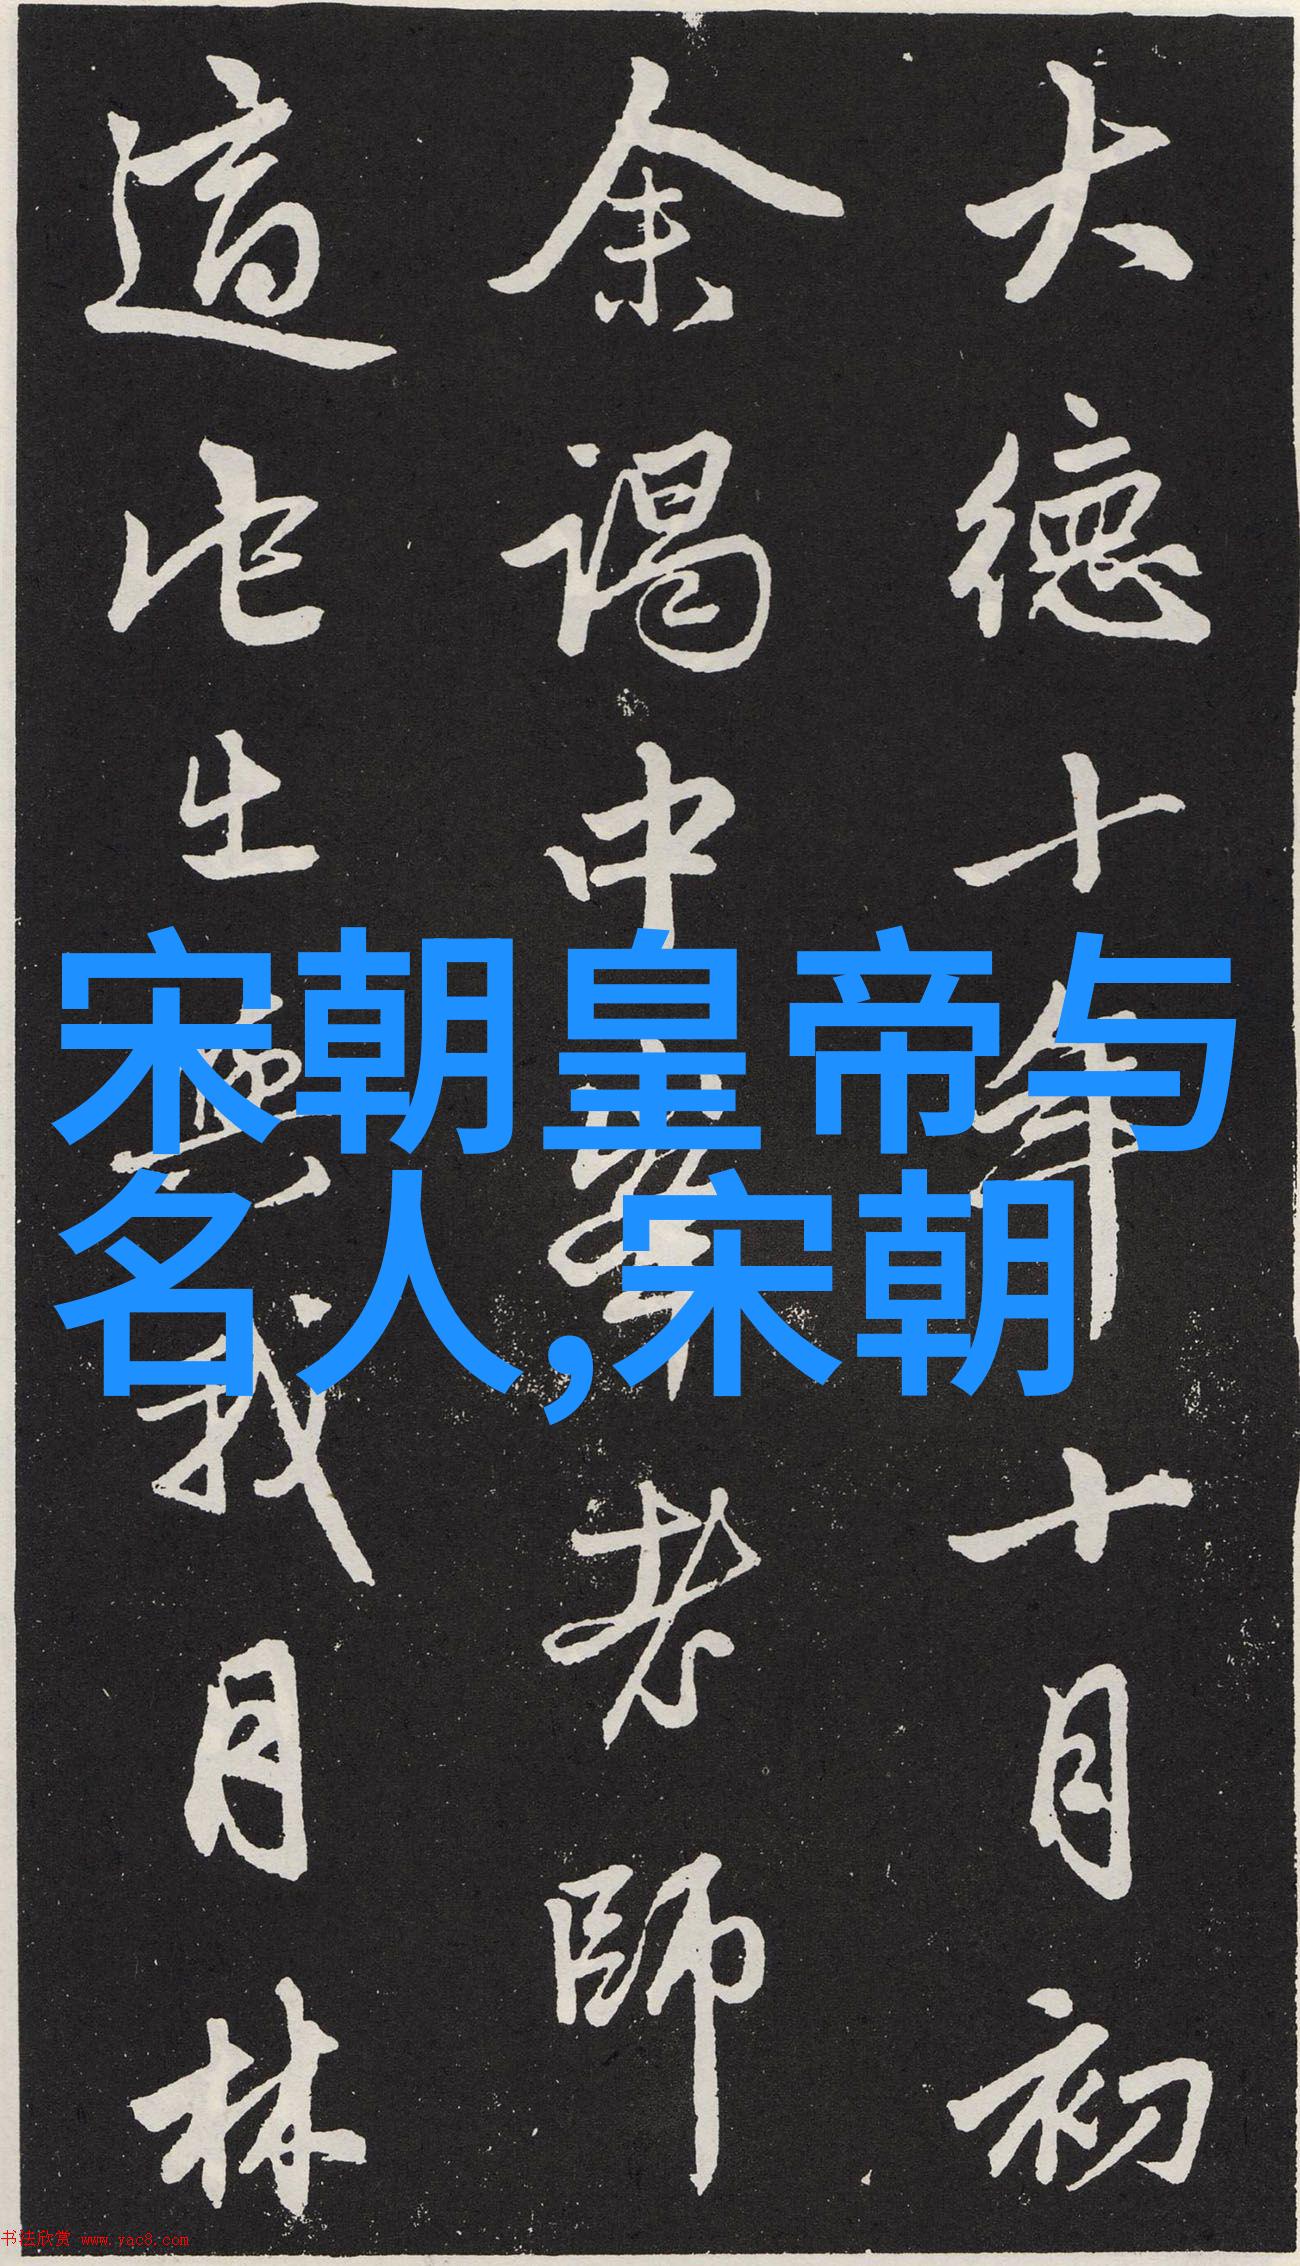 大德十年十月初
余謁中峯老師
適此出與我月林
宋朝皇帝与
名人,宋朝
书法欣赏 www.yac8.com